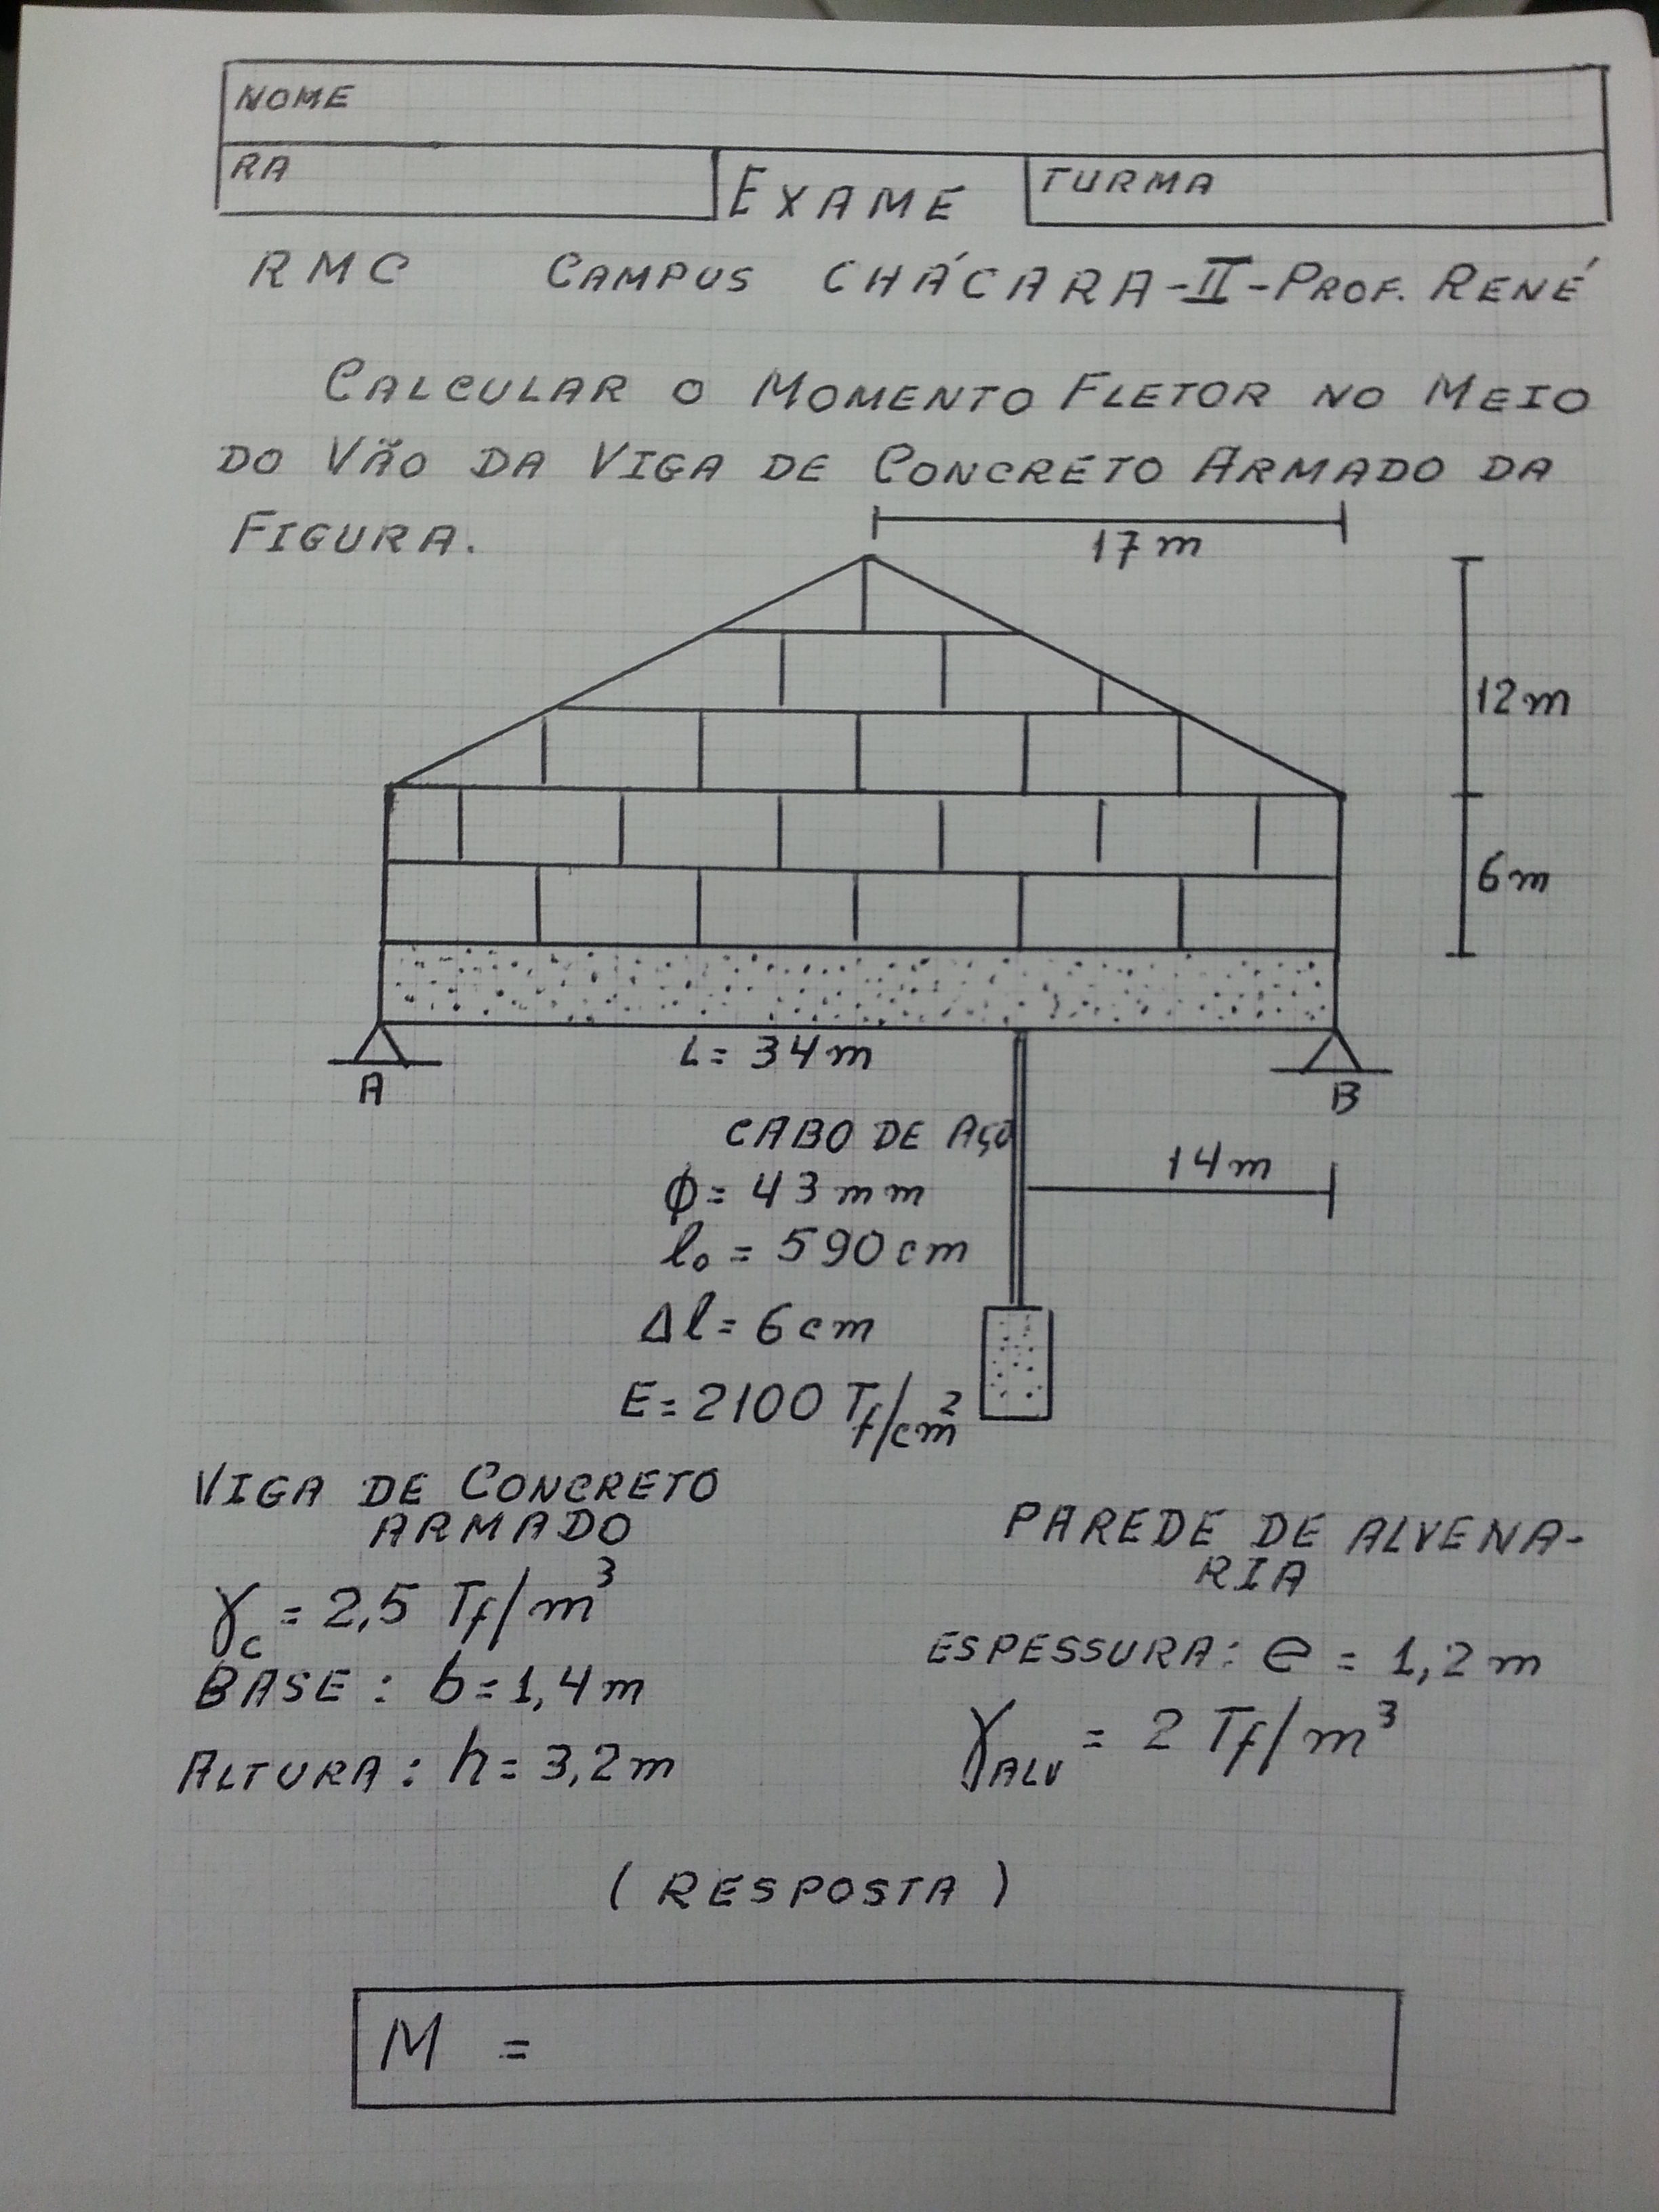 NOME
RA
EXAME
TURMA
RMC CAMPUS CHÁCARA-II-PROF. RENÉ
CALCULAR O MOMENTO FLETOR NO MEIO
DO VÃO DA VIGA DE CONCRETO ARMADO DA
FIGURA.
17 m
12 m
6 m
L = 34 m
A
B
CABO DE AÇO
14 m
ϕ = 43 mm
l₀ = 590 cm
Δl = 6 cm
E = 2100 Tf/cm²
VIGA DE CONCRETO
ARMADO
γc = 2,5 Tf/m³
BASE : b = 1,4 m
ALTURA : h = 3,2 m
PAREDE DE ALVENA-
RIA
ESPESSURA : e = 1,2 m
γALV = 2 Tf/m³
(RESPOSTA)
M =